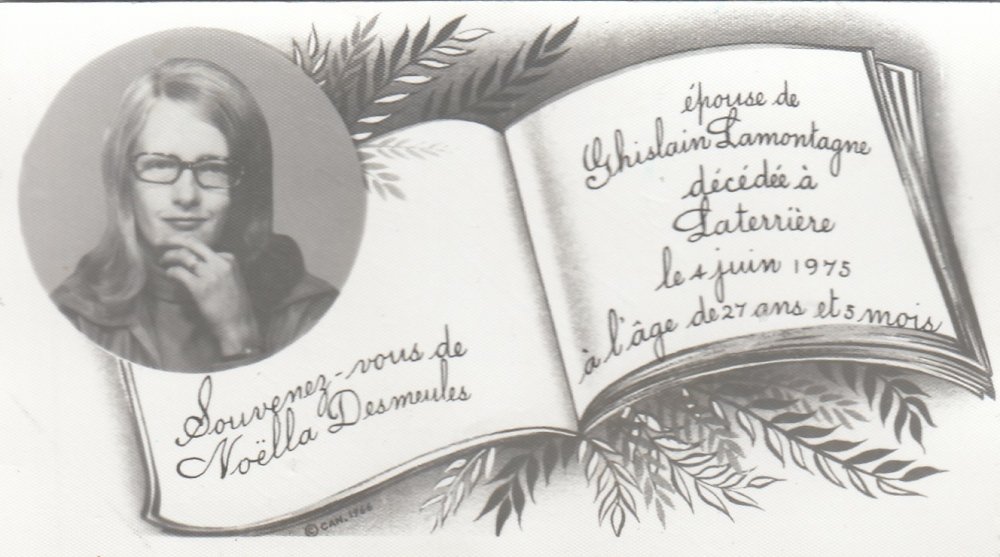 Souvenez-vous de
Noëlla Desmeules
épouse de
Ghislain Lamontagne
décédée à
Laterrière
le 4 juin 1975
à l'âge de 27 ans et 5 mois
© CAN. 1966